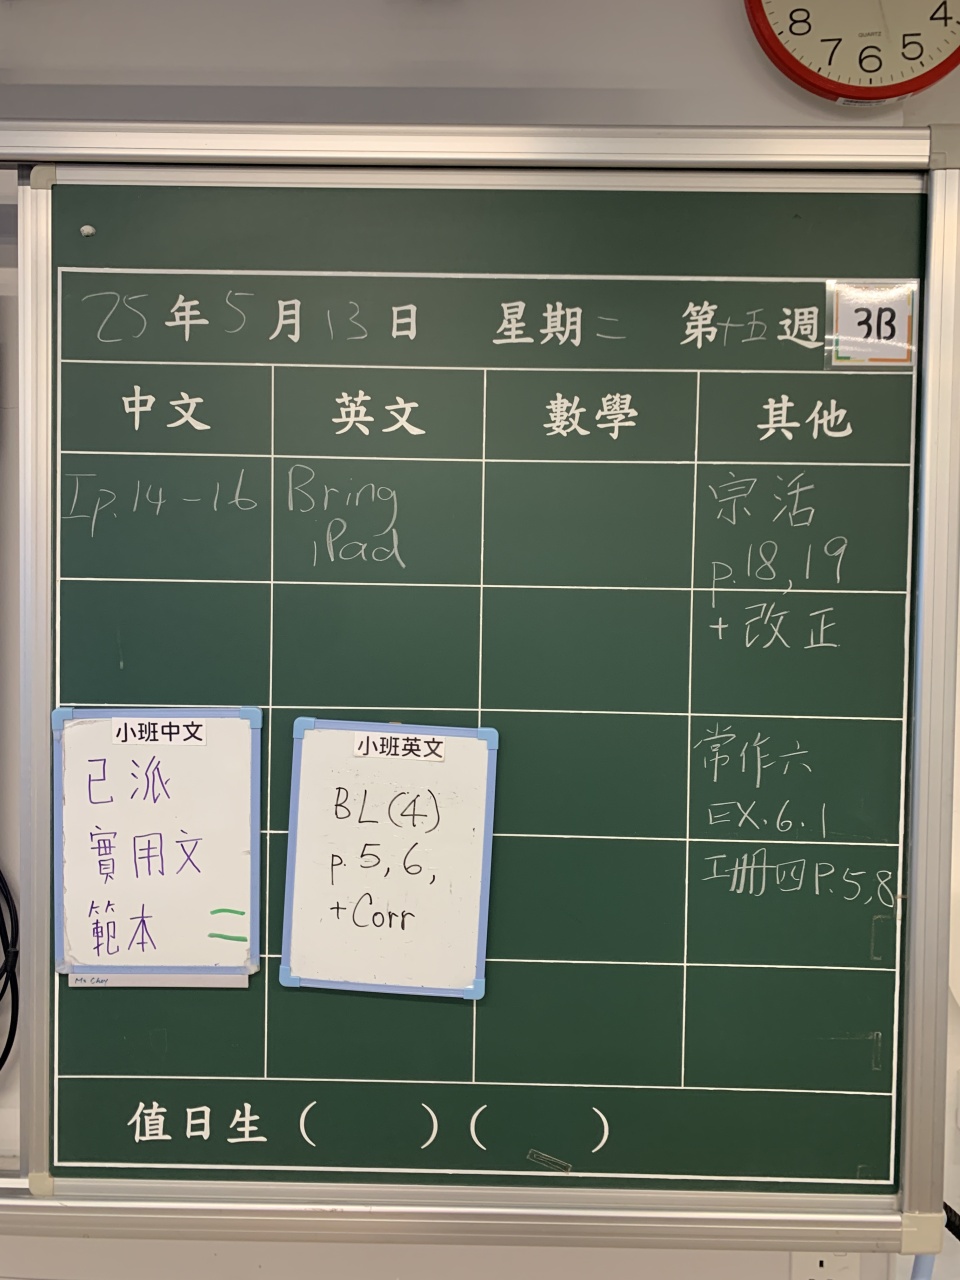 8 7 6 5 4
QUARTZ
25年5月13日 星期二 第十五週 3B
中文 英文 數學 其他
Ip.14-16
Bring
iPad
宗活
p.18,19
+改正
常作六
EX.6.1
工冊四P.5,8
小班中文
已派
實用文
範本 二
小班英文
BL(4)
p.5,6,
+Corr
值日生( )( )